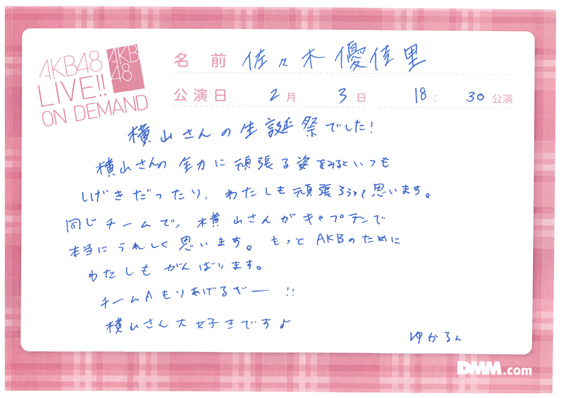 AKB48
LIVE!!
ON DEMAND
AKB
48
名前 佐々木優佳里
公演日 2月 3日 18:30公演
横山さんの生誕祭でした!
横山さんの全力に頑張る姿をみるといつも
しげきだったり、わたしも頑張ろうって思います。
同じチームで、横山さんがキャプテンで
本当にうれしく思います。もっとAKBのために
わたしもがんばります。
チームAもりあげるぞー!!
横山さん大好きです♪
ゆかるん
DMM.com